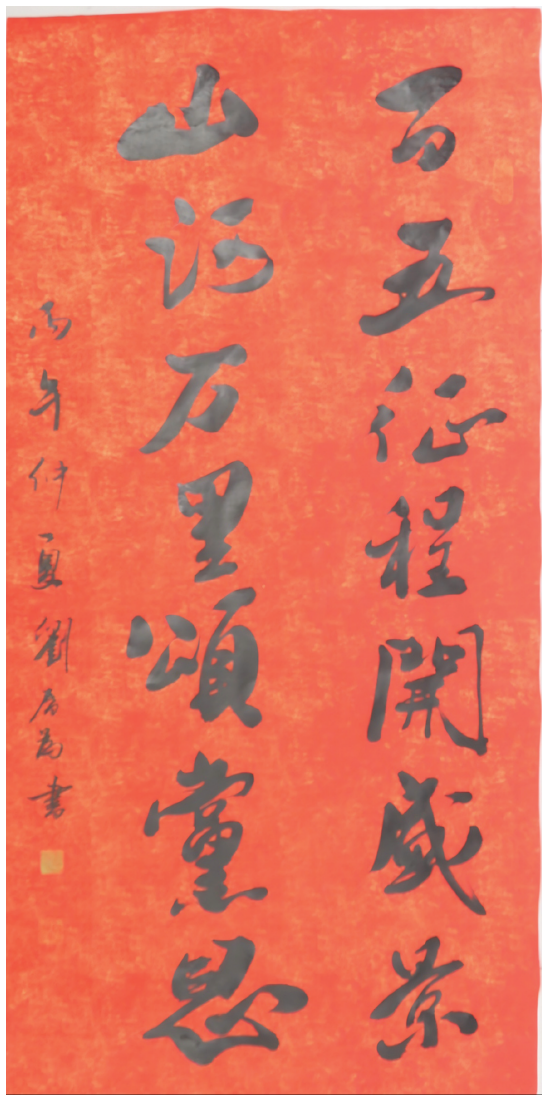 百五征程開盛景
山河万里頌黨恩
丙午仲夏劉居為書